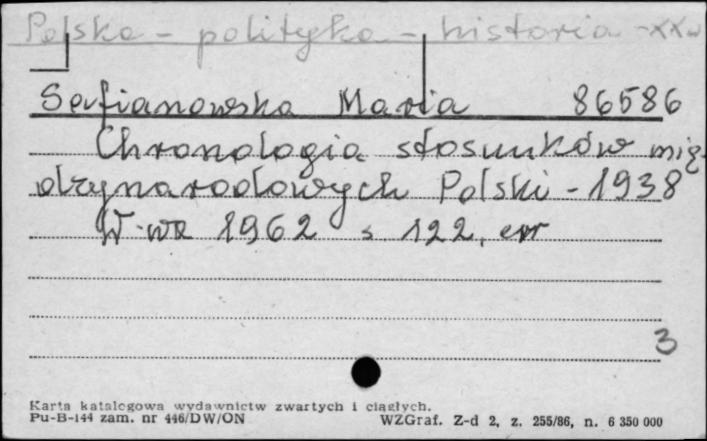 Polska - polityka - historia - XX w
Safianowska Maria 86586
Chronologia stosunków mię-
dzynarodowych Polski - 1938
W-wa 1962 s 122, err
3
Karta katalogowa wydawnictw zwartych i ciągłych.
Pu-B-144 zam. nr 446/DW/ON WZGraf. Z-d 2, z. 255/86, n. 6 350 000